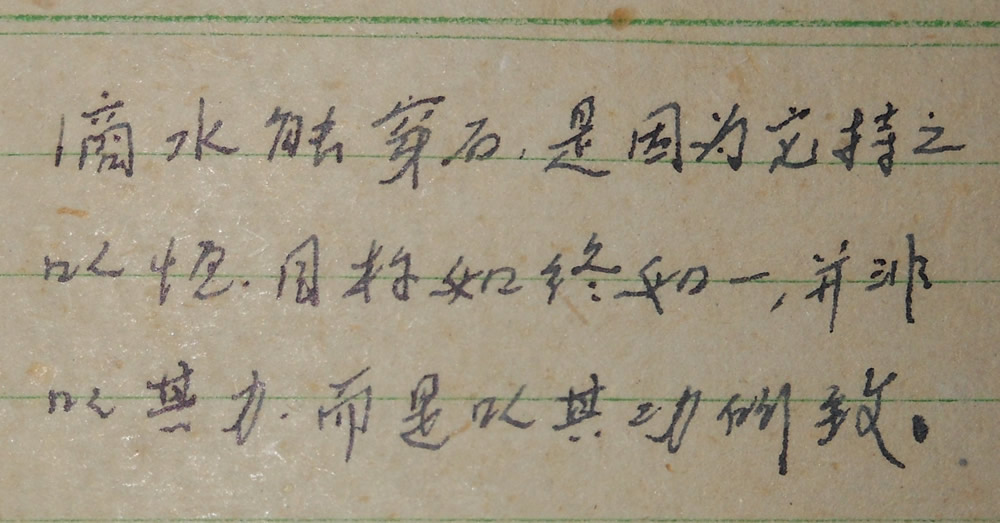 滴水能穿石,是因为它持之
以恒.目标如终如一,并非
以其力.而是以其功所致。